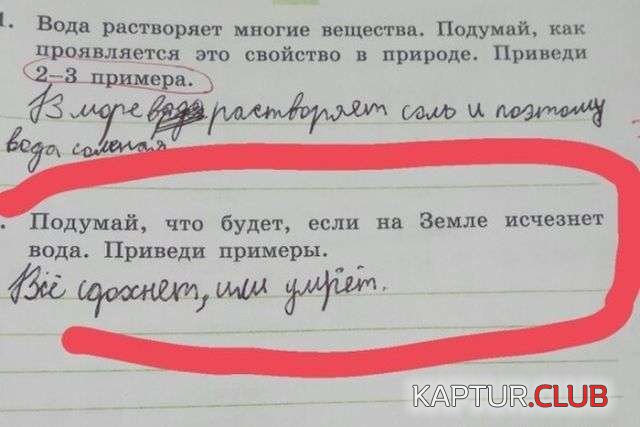 1. Вода растворяет многие вещества. Подумай, как
проявляется это свойство в природе. Приведи
2–3 примера.
В море вода растворяет соль и поэтому
вода соленая
. Подумай, что будет, если на Земле исчезнет
вода. Приведи примеры.
Всё сдохнет, или умрёт.
KAPTUR.CLUB